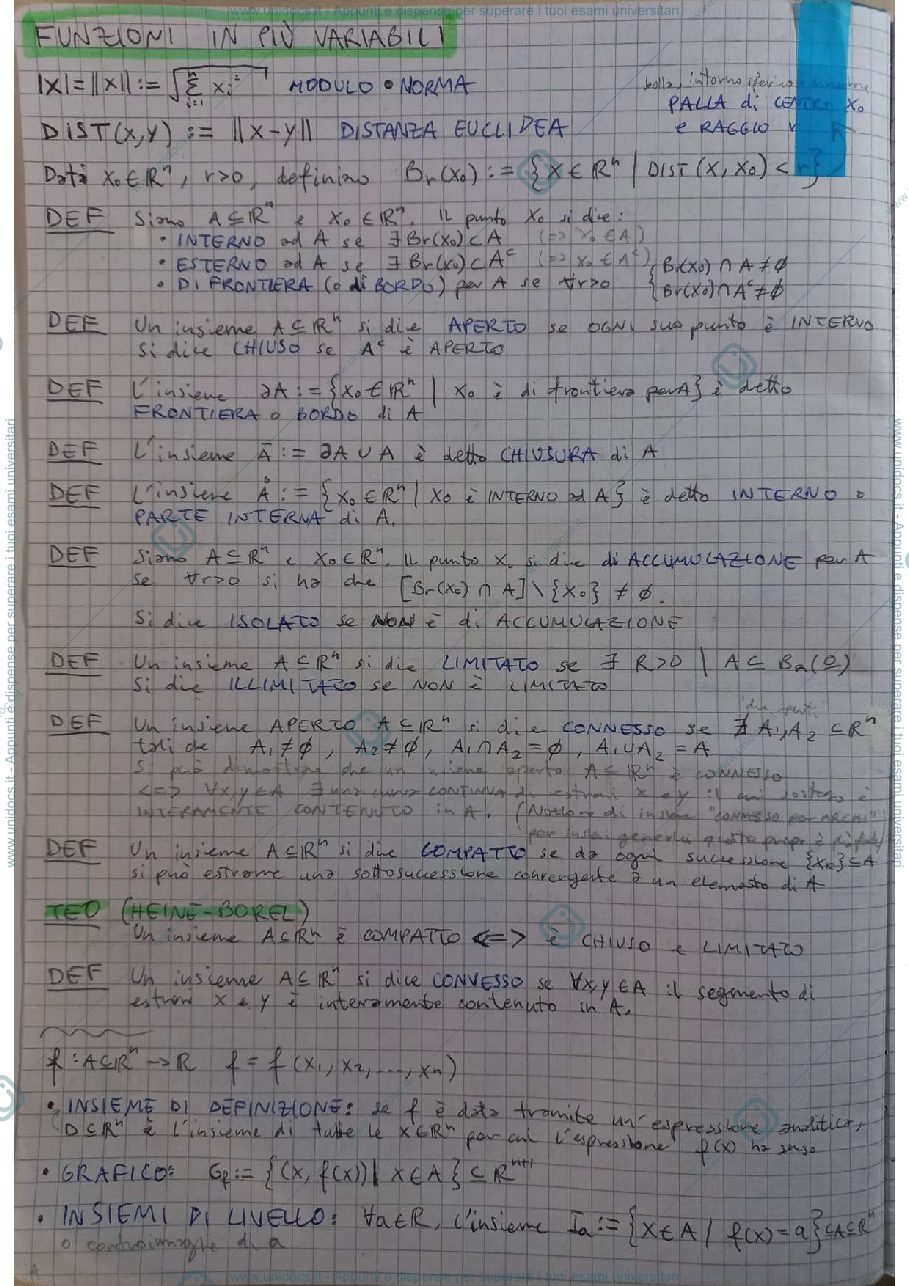 www.unidocs.it - Appunti e dispense per superare i tuoi esami universitari
FUNZIONI IN PIÙ VARIABILI
|x| = ||x|| := √(Σ_{i=1}^{n} x_i²) MODULO o NORMA
palla, intorno sferico
PALLA di CENTRO x₀
e RAGGIO r
DIST(x,y) := ||x-y|| DISTANZA EUCLIDEA
Dati x₀∈ℝⁿ, r>0, definiamo Br(x₀) := {x∈ℝⁿ | DIST(x,x₀) < r}
DEF Siano A⊆ℝⁿ e x₀∈ℝⁿ. Il punto x₀ si dice:
• INTERNO ad A se ∃Br(x₀)⊂A (=> x₀∈A)
• ESTERNO ad A se ∃Br(x₀)⊂Aᶜ (=> x₀∈Aᶜ)
• DI FRONTIERA (o di BORDO) per A se ∀r>0 {Br(x₀)∩A≠∅
{Br(x₀)∩Aᶜ≠∅
DEF Un insieme A⊆ℝⁿ si dice APERTO se OGNI suo punto è INTERNO
Si dice CHIUSO se Aᶜ è APERTO
DEF L'insieme ∂A := {x₀∈ℝⁿ | x₀ è di frontiera per A} è detto
FRONTIERA o BORDO di A
DEF L'insieme Ā := ∂A ∪ A è detto CHIUSURA di A
DEF L'insieme Å := {x₀∈ℝⁿ | x₀ è INTERNO ad A} è detto INTERNO o
PARTE INTERNA di A.
DEF Siano A⊆ℝⁿ e x₀∈ℝⁿ. Il punto x₀ si dice di ACCUMULAZIONE per A
se ∀r>0 si ha che [Br(x₀)∩A]\{x₀} ≠ ∅.
Si dice ISOLATO se NON è di ACCUMULAZIONE
DEF Un insieme A⊆ℝⁿ si dice LIMITATO se ∃ R>0 | A⊆ B_R(0)
Si dice ILLIMITATO se NON è LIMITATO
DEF Un insieme APERTO A⊆ℝⁿ si dice CONNESSO se ∄ A₁,A₂ ⊆ℝⁿ
tali che A₁≠∅, A₂≠∅, A₁∩A₂=∅, A₁∪A₂=A
Si può dimostrare che un insieme aperto A⊆ℝⁿ è CONNESSO
<=> ∀x,y∈A ∃ una curva CONTINUA di estremi x e y il cui sostegno è
INTERAMENTE CONTENUTO in A. (Nozione di insieme "connesso per archi"
DEF Un insieme A⊆ℝⁿ si dice COMPATTO se da ogni successione {xₙ}⊆A
si può estrarre una sottosuccessione convergente a un elemento di A
TEO (HEINE-BOREL)
Un insieme A⊆ℝⁿ è COMPATTO <=> è CHIUSO e LIMITATO
DEF Un insieme A⊆ℝⁿ si dice CONVESSO se ∀x,y∈A il segmento di
estremi x e y è interamente contenuto in A.
f : A⊆ℝⁿ → ℝ f = f(x₁, x₂, ..., xₙ)
• INSIEME DI DEFINIZIONE: se f è data tramite un'espressione analitica,
D⊆ℝⁿ è l'insieme di tutte le x∈ℝⁿ per cui l'espressione f(x) ha senso
• GRAFICO: G_f := {(x, f(x)) | x∈A} ⊆ ℝⁿ⁺¹
• INSIEMI DI LIVELLO: ∀a∈ℝ, l'insieme I_a := {x∈A | f(x)=a}⊆A⊆ℝⁿ
o controimmagine di a
www.unidocs.it - Appunti e dispense per superare i tuoi esami universitari